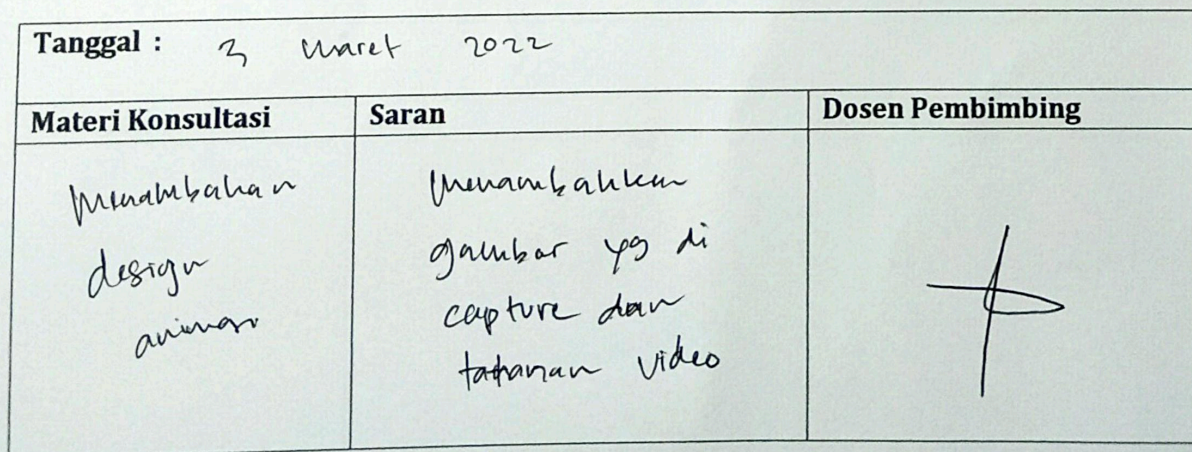 Tanggal : 3 Maret 2022
Materi Konsultasi Saran Dosen Pembimbing
Menambahan
design
animasi
Menambahkan
gambar yg di
capture dan
tahanan video